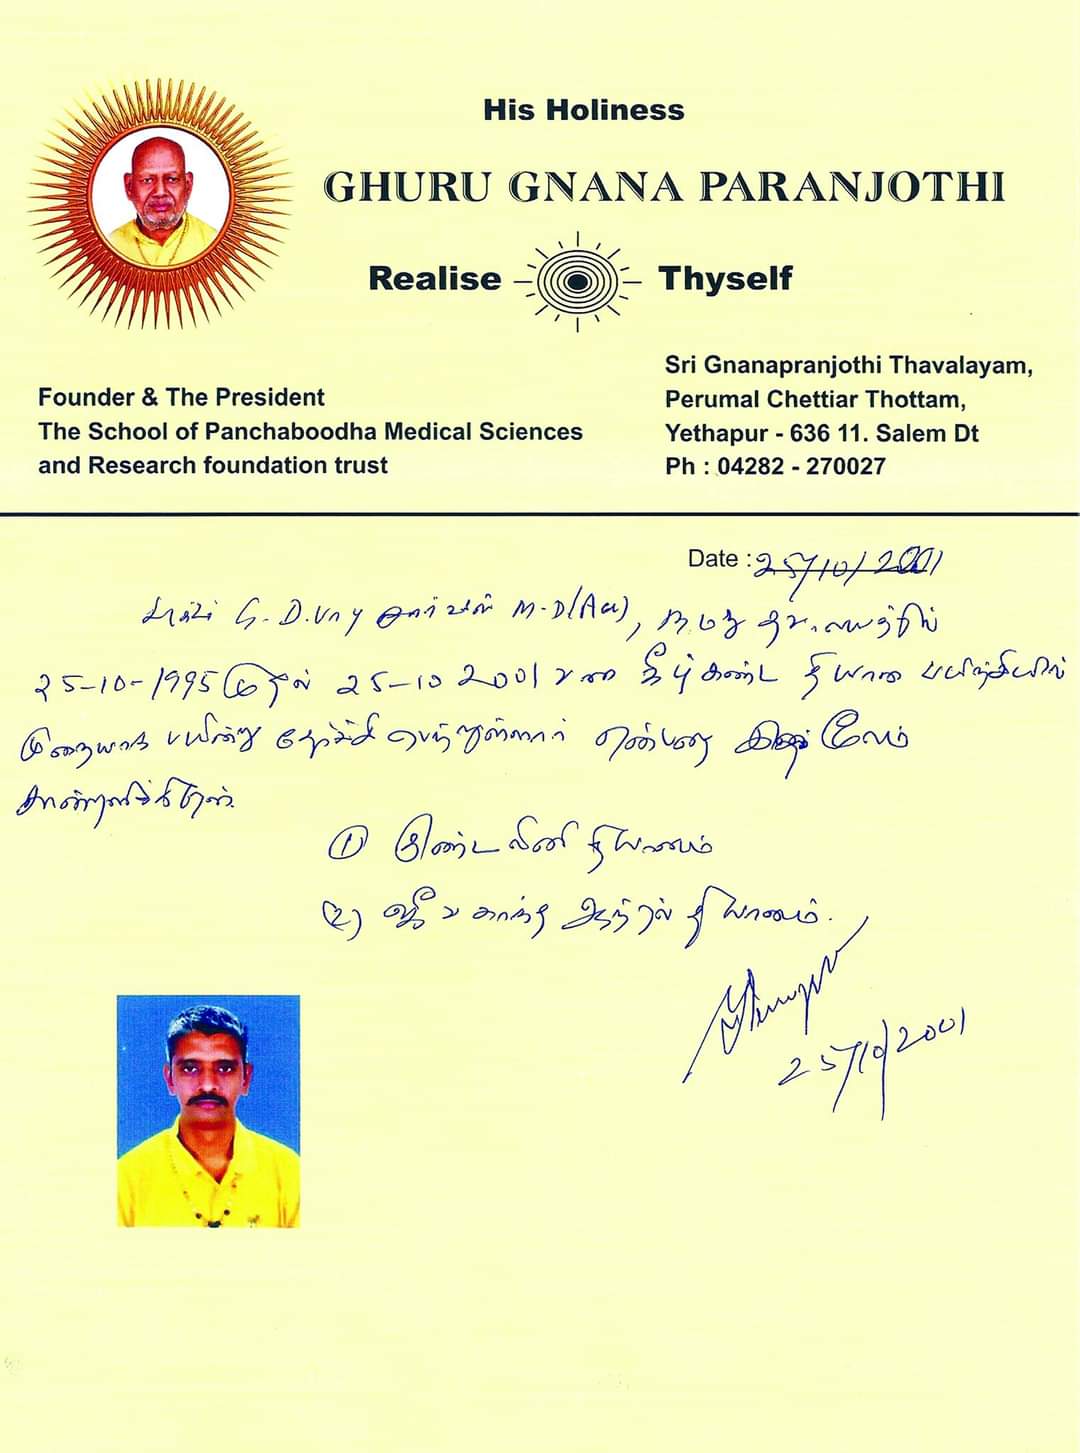 His Holiness
GHURU GNANA PARANJOTHI
Realise Thyself
Founder & The President
The School of Panchaboodha Medical Sciences
and Research foundation trust
Sri Gnanapranjothi Thavalayam,
Perumal Chettiar Thottam,
Yethapur - 636 11. Salem Dt
Ph : 04282 - 270027
Date : 25/10/2001
G. D. M.D(Acu), நமது
25-10-1995 முதல் 25-10 2001 வரை கீழ்கண்ட தியான பயிற்சியில்
முறையாக பயின்று தேர்ச்சி பெற்றுள்ளார் என்பதை இதன் மூலம்
சான்றளிக்கிறேன்.
① குண்டலினி தியானம்
(2) ஜீவகாந்த ஆற்றல் தியானம்.
25/10/2001